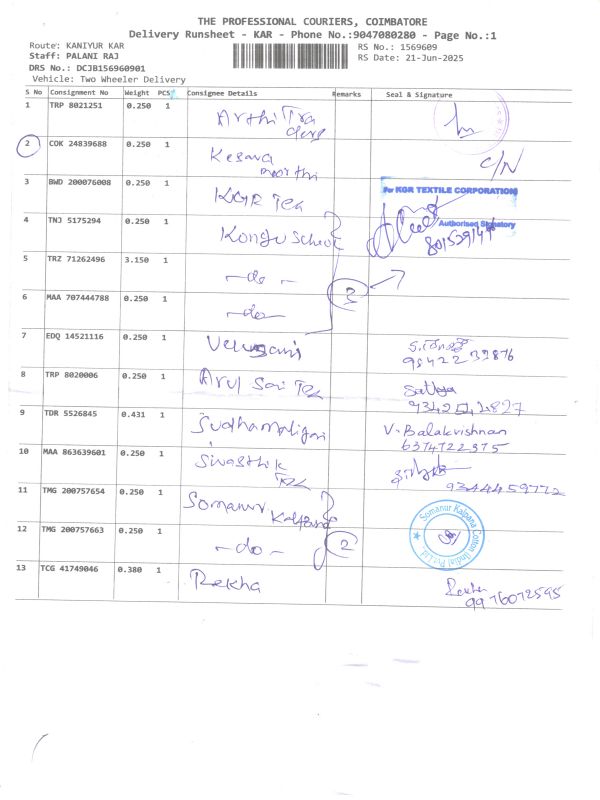 THE PROFESSIONAL COURIERS, COIMBATORE
Delivery Runsheet - KAR - Phone No.:9047080280 - Page No.:1
Route: KANIYUR KAR
RS No.: 1569609
Staff: PALANI RAJ
RS Date: 21-Jun-2025
DRS No.: DCJB156960901
Vehicle: Two Wheeler Delivery
S No Consignment No Weight PCS Consignee Details Remarks Seal & Signature
1 TRP 8021251 0.250 1 Arthi Tra
ders
2 COK 24839688 0.250 1 Kesava
moorthi C/N
3 BWD 200076008 0.250 1 KGR Tex
For KGR TEXTILE CORPORATION
Authorised Signatory
4 TNJ 5175294 0.250 1 Kongu School
5 TRZ 71262496 3.150 1 -do-
3
6 MAA 707444788 0.250 1 -do-
7 EDQ 14521116 0.250 1 Velusami
8 TRP 8020006 0.250 1 Arul Sai Tex
9 TDR 5526845 0.431 1 Sudhamaligai V. Balakrishnan
6374722375
10 MAA 863639601 0.250 1 Sivasthik
Tex 9344459772
11 TMG 200757654 0.250 1 Somanur Kalpana
Somanur Kalpana Cotton (India) Pvt Ltd
12 TMG 200757663 0.250 1 -do- 2
13 TCG 41749046 0.380 1 Rekha Rekha
9976072595